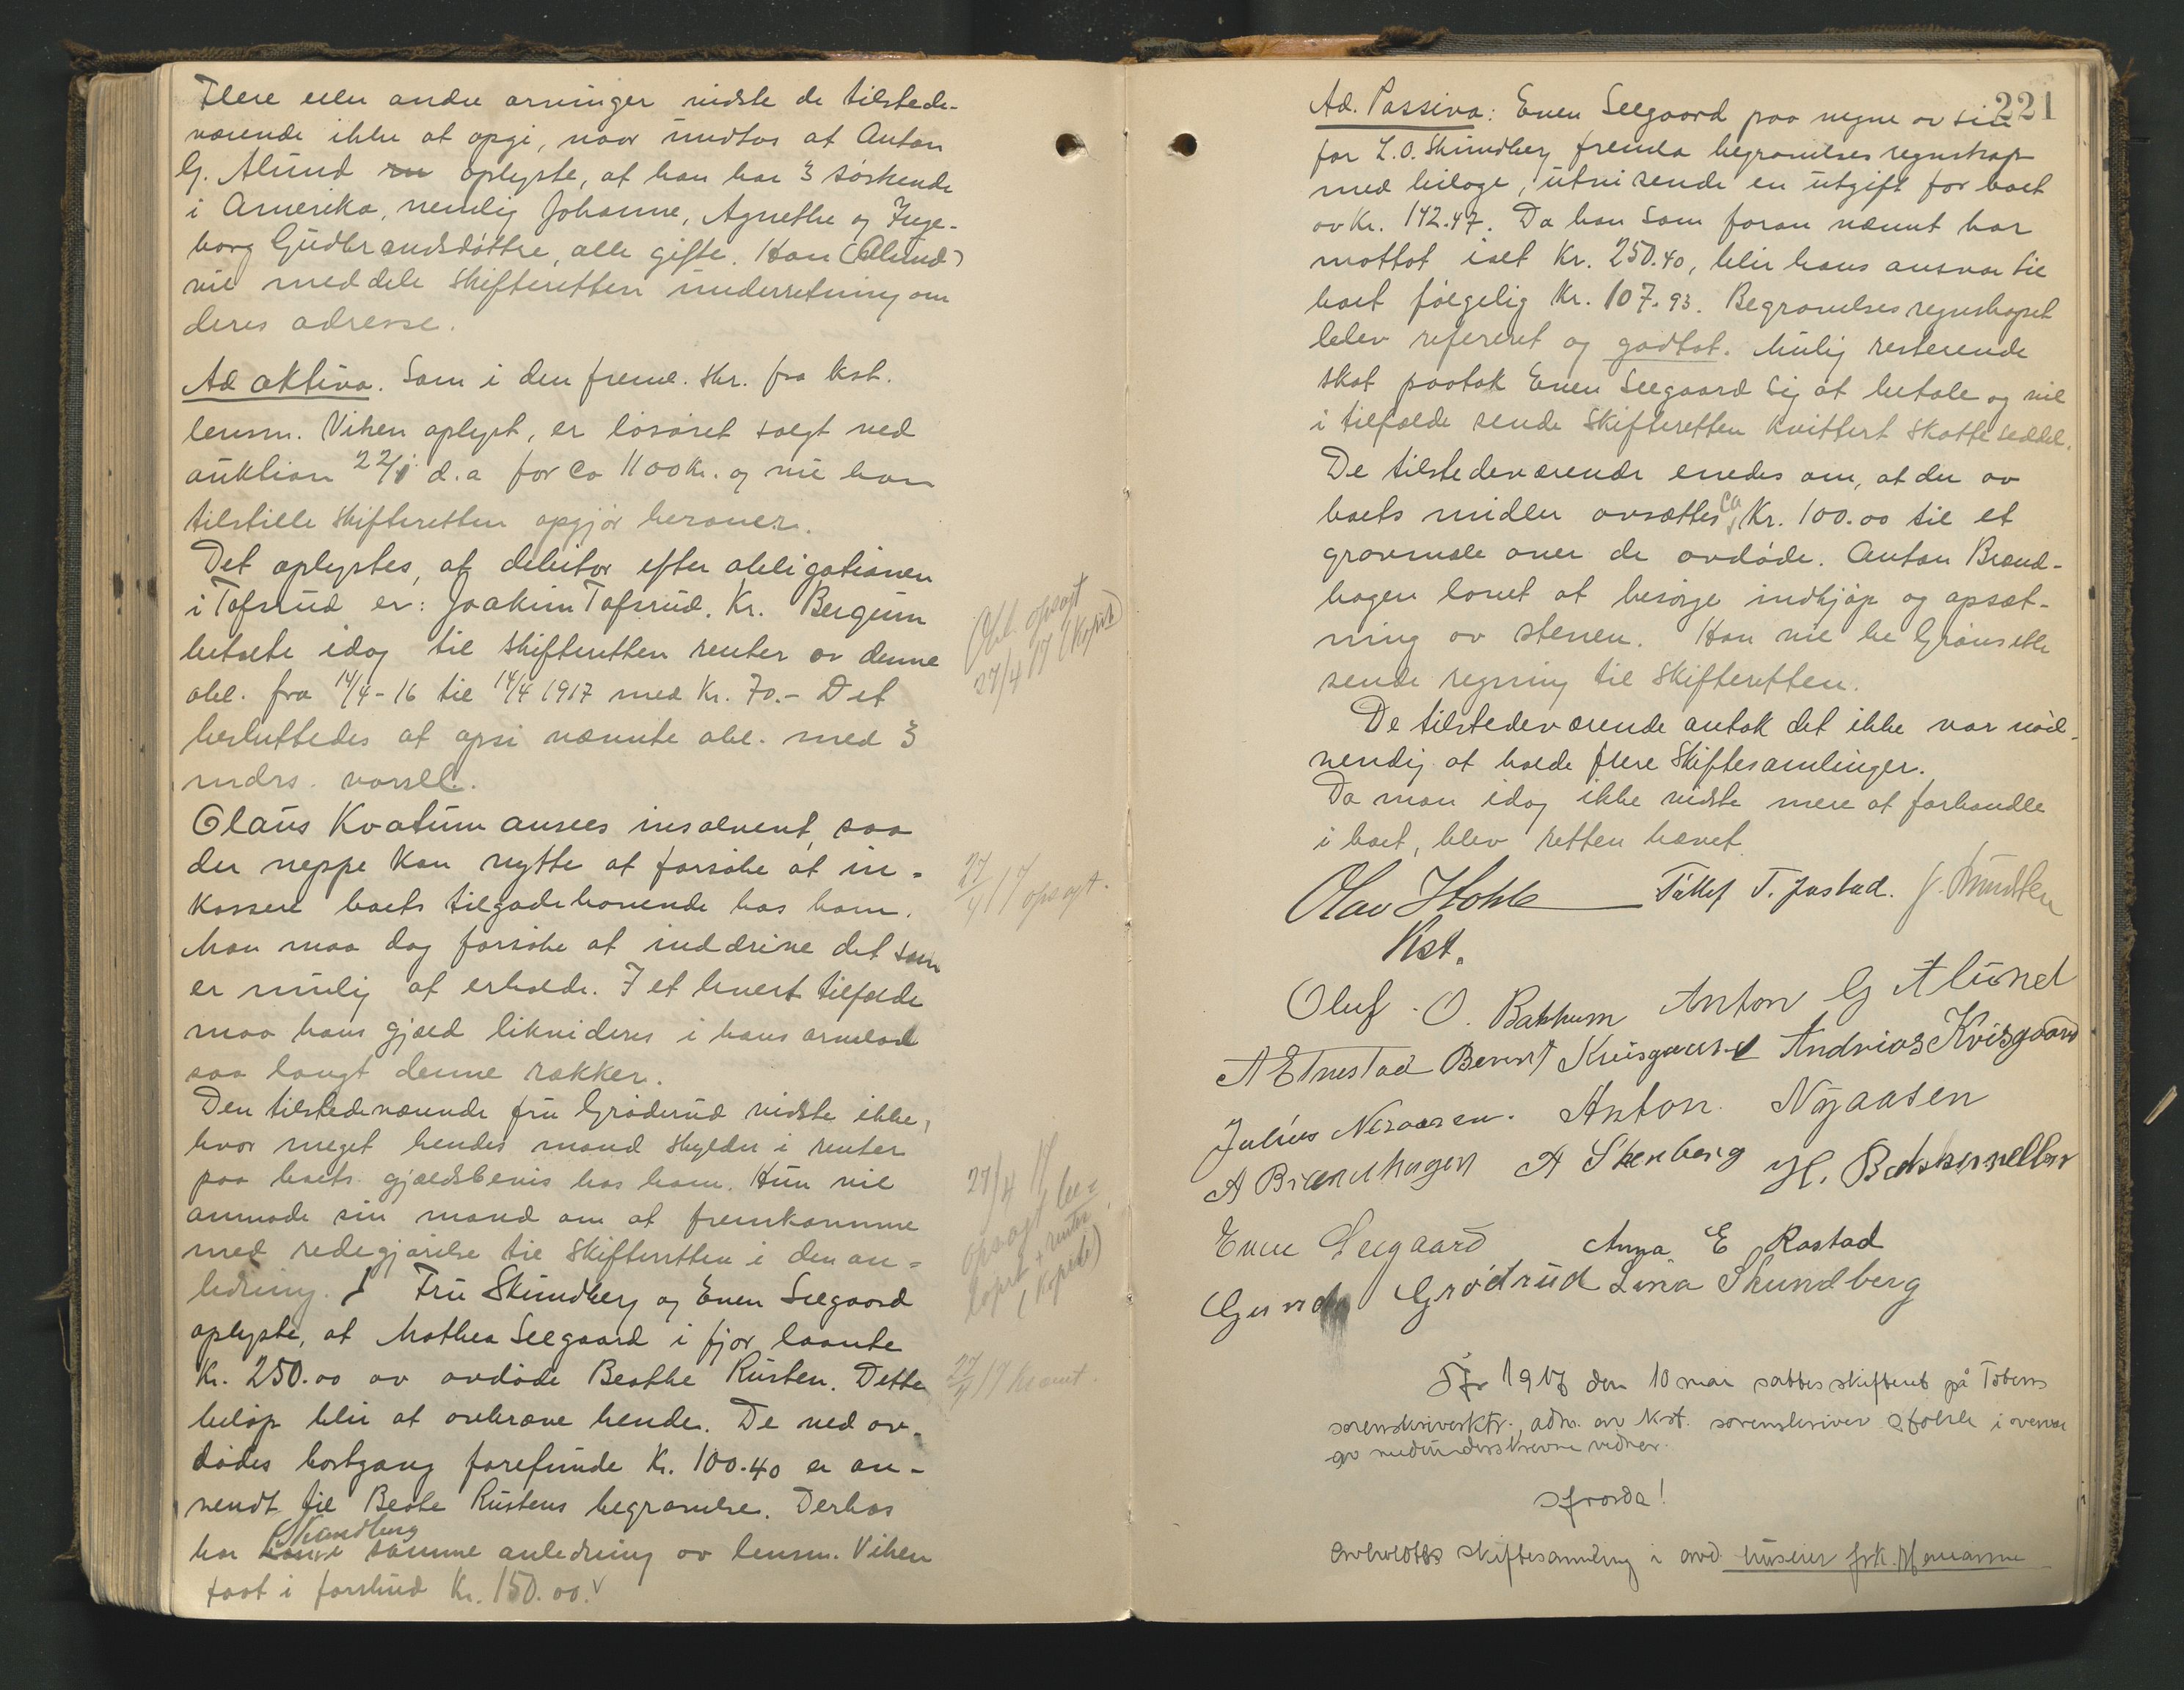 Flere eller andre arvinger vidste de tilstede-
værende ikke at opgi, naar undtas at Anton
G. Alund oplyste, at han har 3 søskende
i Amerika, nemlig Johanne, Agnethe og Inge-
borg Gudbrandsdøttre, alle gifte. Han (Alund)
vil meddele skifteretten underretning om
deres adresse.
Ad aktiva. Som i den freml. skr. fra kst.
lensm. Viken oplyst, er løsøret solgt ved
auktion 22/1 d.a for ca 1100 kr. og vil han
tilstille skifteretten opgjør herover.
Det oplystes, at debitor efter obligationen
i Tofsrud er: Joakim Tofsrud. Kr. Bergum
betalte idag til skifteretten renter av denne
obl. fra 14/4-16 til 14/4 1917 med Kr. 70.- Det
besluttedes at opsi nævnte obl. med 3
mdrs. varsel.
Obl. opsagt
27/4 17 (Kopist)
Olaus Kvatum ansees insolvent, saa
der neppe kan nytte at forsøke at in-
kassere boets tilgodehavende hos ham.
27/4 17 opsagt.
Man maa dog forsøke at inddrive det som
er mulig at erholde. I et hvert tilfælde
maa hans gjæld likvideres i hans arvelod
saa langt denne rækker.
Den tilstedeværende fru Grøderud vidste ikke,
hvor meget hendes mand skylder i renter
paa boets gjældsbevis hos ham. Hun vil
anmode sin mand om at fremkomme
med redegjørelse til skifteretten i den an-
ledning. Fru Skundberg og Even Seegaard
27/4 17
opsagt be-
løpet + renter
(Kopist)
oplyste, at Mathea Seegaard i fjor laante
Kr. 250.00 av avdøde Beathe Rusten. Dette
27/4 17 krævet.
beløp blir at avkræve hende. De ved av-
dødes bortgang forefundne Kr. 100.40 er an-
vendt til Beate Rustens begravelse. Derhos
Skundberg
har i samme anledning av lensm. Viken
faat i forskud Kr. 150.00.
221
Ad. Passiva: Even Seegaard paa vegne av sin
for L.O. Skundberg fremla begravelsesregnskap
med bilage, utvisende en utgift for boet
av Kr. 142.47. Da han som foran nævnt har
mottat ialt Kr. 250.40, blir hans ansvar til
boet følgelig Kr. 107.93. Begravelsesregnskapet
blev referert og godtat. Mulig resterende
skat paatok Even Seegaard sig at betale og vil
i tilfælde sende skifteretten kvittert skatteseddel.
De tilstedeværende enedes om, at der av
boets midler avsættes ca Kr. 100.00 til et
gravmæle over de avdøde. Anton Brænd-
hagen lovet at besørge indkjøp og opsæt-
ning av stenen. Han vil be Grønseth
sende regning til skifteretten.
De tilstedeværende antok det ikke var nød-
vendig at holde flere skiftesamlinger.
Da man idag ikke vidste mere at forhandle
i boet, blev retten hævet
Olav Stokke Tollef T. Jøstad. J. Knudsen
Kst.
Oluf O. Bakkum Anton G Alund
A Elnestad Bernt Kvisgaard Andreas Kvisgaard
Julius Nøraasen. Anton Nøraasen
A Brændhagen A Skenberg H. Bakkemellem
Even Seegaard Anna E Rostad
Gunda Grødrud Lina Skundberg
År 1917 den 10 mai sattes skifteret på Totens
sorenskriverktr., adm. av kst. sorenskriver Stokke i overvær
av medunderskrevne vidner.
Hvorda!
avholdtes skiftesamling i avd. huseier frk. Marianne